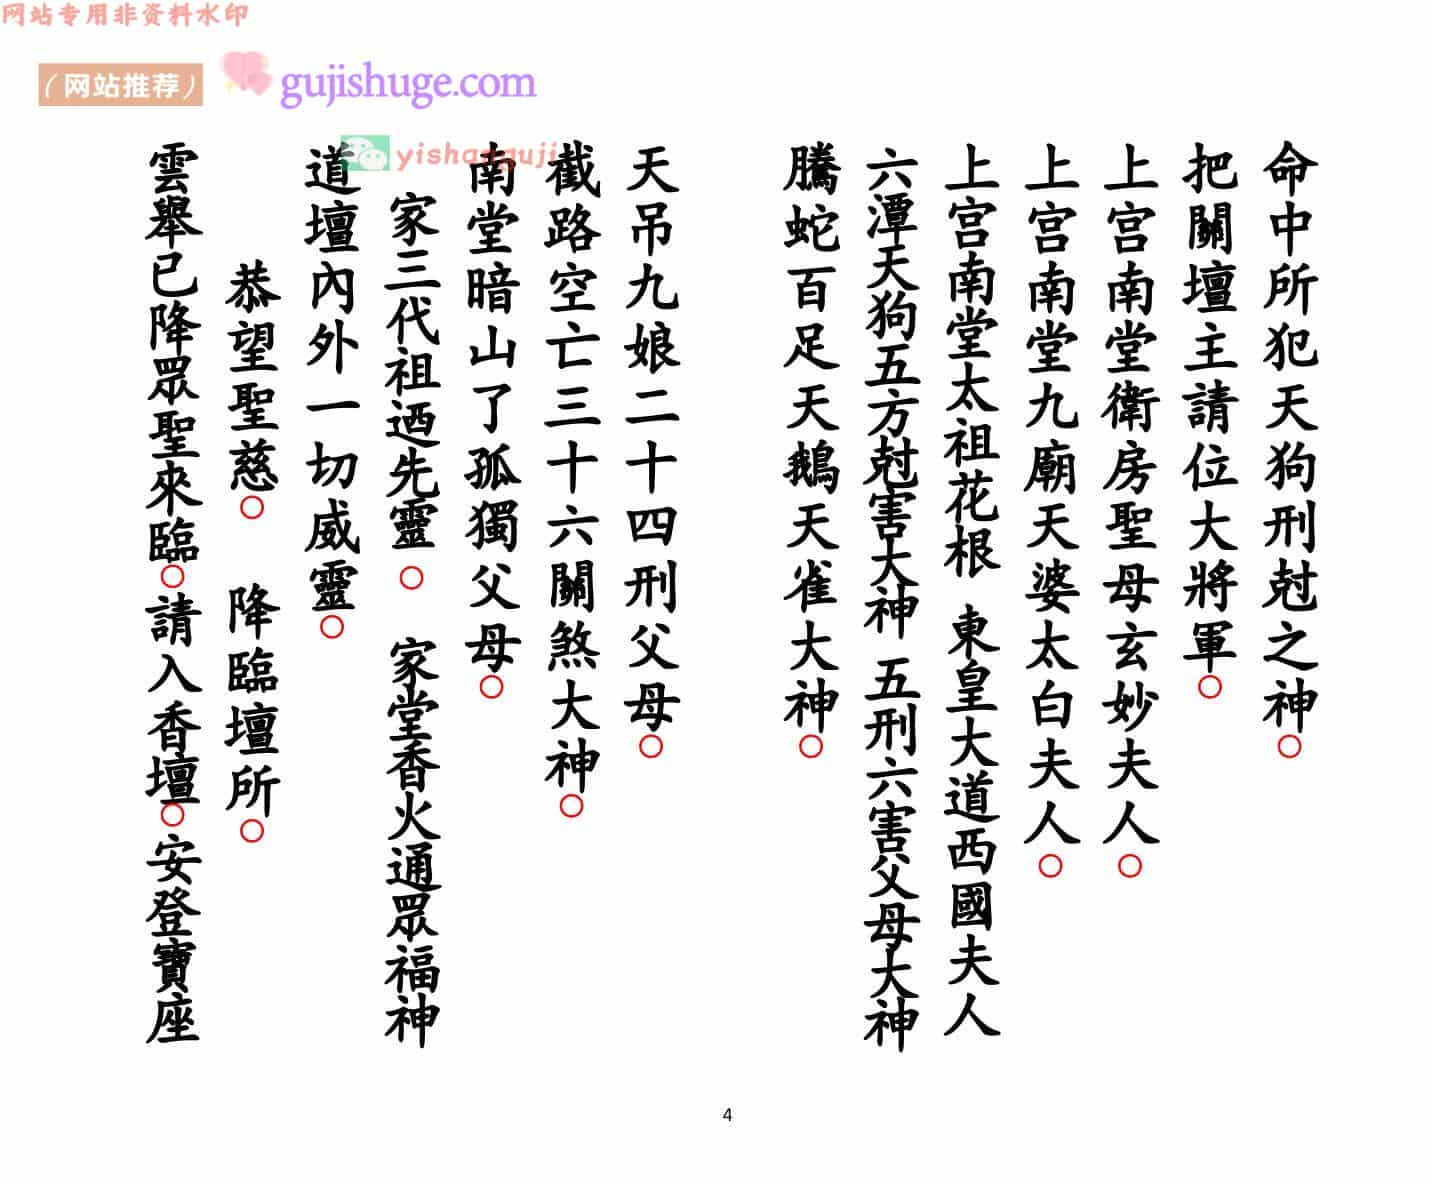 网站专用非资料水印
(网站推荐)
gujishuge.com
yishanguji
命中所犯天狗刑尅之神○
把關壇主請位大將軍○
上宮南堂衛房聖母玄妙夫人○
上宮南堂九廟天婆太白夫人○
上宮南堂太祖花根 東皇大道西國夫人
六潭天狗五方尅害大神 五刑六害父母大神
騰蛇百足天鵝天雀大神○
天吊九娘二十四刑父母○
截路空亡三十六關煞大神○
南堂暗山了孤獨父母○
家三代祖迺先靈○ 家堂香火通眾福神
道壇內外一切威靈○
恭望聖慈○ 降臨壇所○
雲舉已降眾聖來臨○請入香壇○安登寶座
4